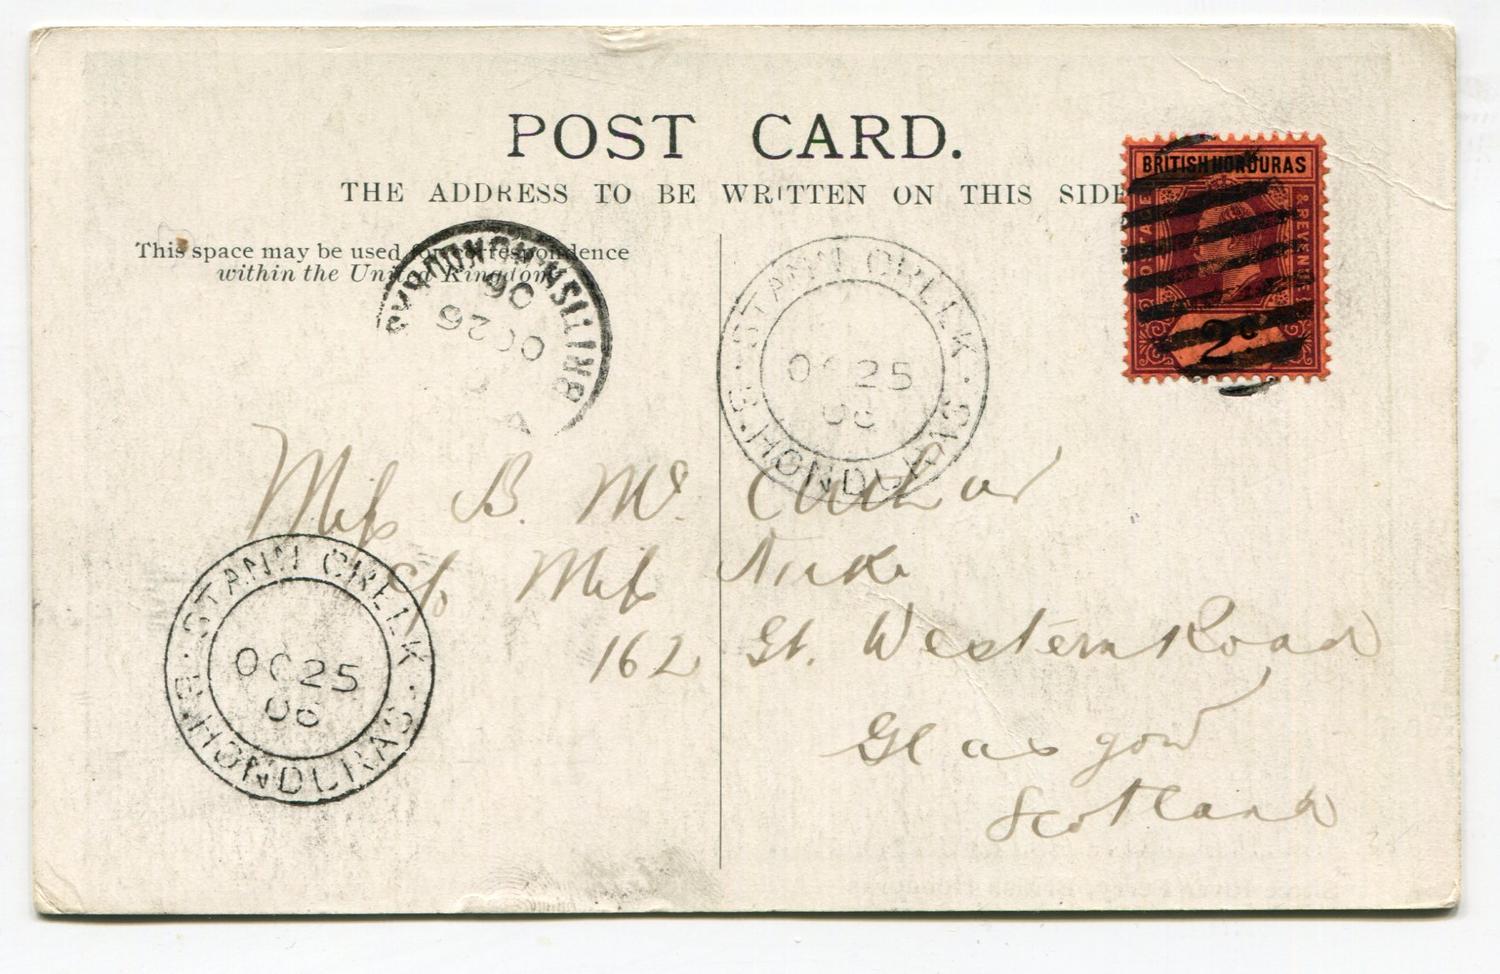 POST CARD.
THE ADDRESS TO BE WRITTEN ON THIS SIDE
This space may be used for correspondence
within the United Kingdom
BRITISH HONDURAS
POSTAGE & REVENUE
2c
BRITISH HONDURAS
OC 26
06
STANN CREEK
OC 25
06
B. HONDURAS
Miss B. Mc
c/o Miss
162 Gt. Western Road
Glasgow
Scotland
STANN CREEK
OC 25
06
B. HONDURAS